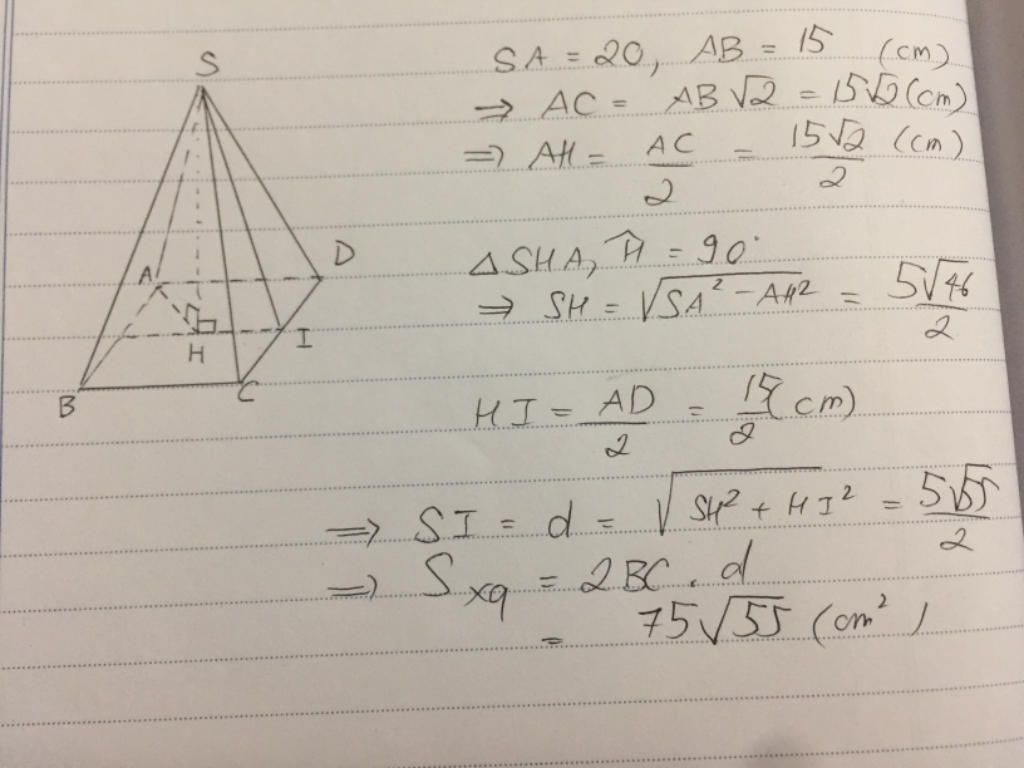 S
SA = 20, AB = 15 (cm)
⇒ AC = AB√2 = 15√2 (cm)
⇒ AH = AC/2 = 15√2/2 (cm)
A
D
△SHA, Ĥ = 90°
⇒ SH = √(SA² - AH²) = 5√46/2
H
I
B
C
HI = AD/2 = 15/2 (cm)
⇒ SI = d = √(SH² + HI²) = 5√55/2
⇒ Sxq = 2BC . d
= 75√55 (cm²)